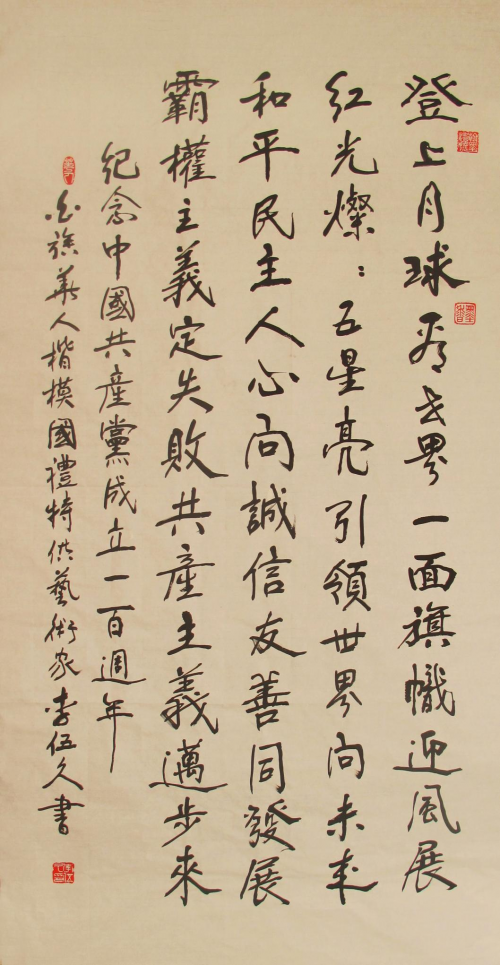 登上月球看世界一面旗幟迎風展
紅光燦：五星亮引領世界向未来
和平民主人心向誠信友善同發展
霸權主義定失敗共產主義邁步來
紀念中國共產黨成立一百週年
白族華人楷模國禮特供藝術家李伍久書